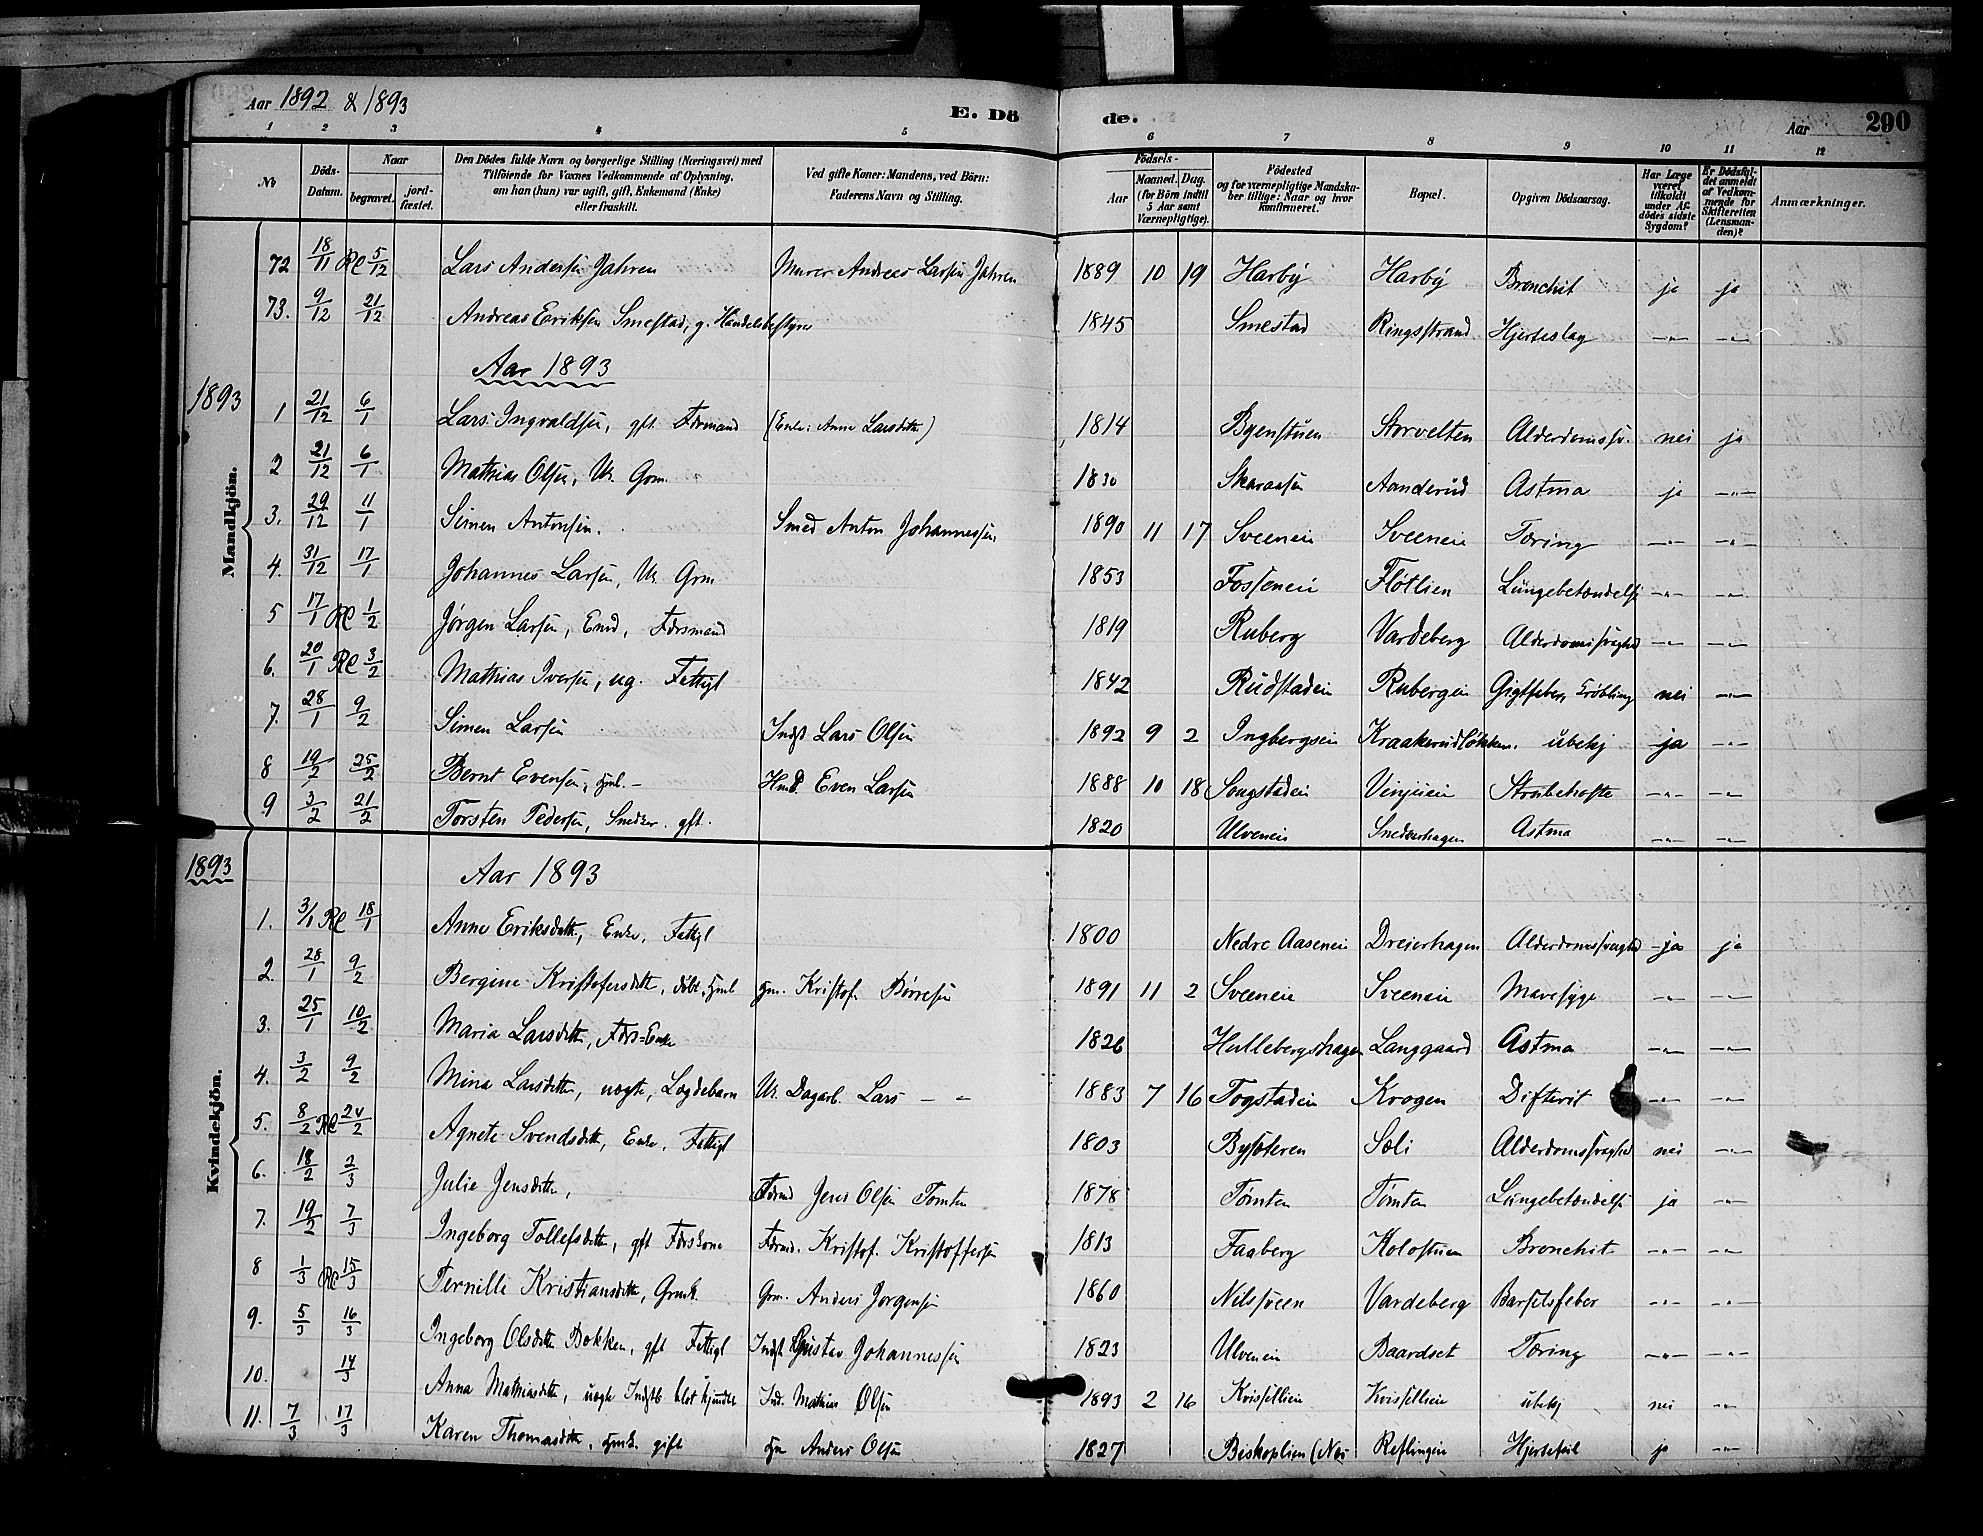 Aar 1892 & 1893 E. Dö de. Aar 290
1 2 3 4 5 6 7 8 9 10 11 12
No Döds-Datum. Naar begravet. jordfæstet. Den Dödes fulde Navn og borgerlige Stilling (Næringsvei) med Tilföiende for Voxnes Vedkommende af Oplysning, om han (hun) var ugift, gift, Enkemand (Enke) eller fraskilt. Ved gifte Koner: Mandens, ved Börn: Faderens Navn og Stilling. Födsels- Aar Maaned. Dag. (for Börn indtil 5 Aar samt Værnepligtige). Födested og for værnepligtige Mandskaber tillige: Naar og hvor konfirmeret. Bopæl. Opgiven Dödsaarsag. Har Læge været tilkaldt under Afdödes sidste Sygdom? Er Dödsfaldet anmeldt af Vedkommende for Skifteretten (Lensmanden)? Anmærkninger.
Mandkjön.
72 18/11 RC 5/12 Lars Andersen Jahren Murer Andreas Larsen Jahren 1889 10 19 Harby Harby Bronchit ja ja
73. 9/12 21/12 Andreas Eriksen Smestad, g. Handelsbestyrer 1845 Smestad Ringsstrand Hjerteslag -"- -"-
Aar 1893
1893
1 21/12 6/1 Lars Ingvaldsen, gft. Fdrmand (Enke: Anne Larsdttr) 1814 Byenstuen Storvelten Alderdomssv. nei ja
2 21/12 6/1 Mathias Olsen, Ur. Grm. 1830 Skaraasen Aanderud Astma ja -"-
3. 29/12 11/1 Simen Antonsen. Smed Anton Johannessen 1890 11 17 Sveeneie Sveeneie Tæring -"- -"-
4. 31/12 17/1 Johannes Larsen, Ur. Grm 1853 Fosseneie Flotlien Lungebetændelse -"- -"-
5 17/1 RC 1/2 Jørgen Larsen, Emd, Fdrsmand 1819 Ruberg Vardeberg Alderdomssvaghed -"- -"-
6. 20/1 RC 3/2 Mathias Iversen, ug. Fattigl 1842 Rudstadeie Rubergeie Gigtfeber, Krøbling nei -"-
7. 28/1 9/2 Simen Larsen Indst Lars Olsen 1892 9 2 Ingbergseie Kraakerudløkken. ubekj ja -"-
8 19/2 25/2 Bernt Evensen, hml. - Hmd. Even Larsen 1888 10 18 Songstadeie Vinjueie Strubehoste -"- -"-
9 3/2 21/2 Torsten Pedersen, Snedker. gft. 1820 Ulveneie Snedkerhagen Astma -"- -"-
1893
Aar 1893
Kvindekjön.
1. 3/1 RC 18/1 Anne Eriksdttr, Enke, Fattigl 1800 Nedre Aaseneie Dreierhagen Alderdomssvaghed ja ja
2. 28/1 9/2 Bergine Kristofersdttr, døbt, hml hm. Kristof. Børresen 1891 11 2 Sveeneie Sveeneie Mavesyge -"- -"-
3. 25/1 10/2 Maria Larsdttr, Fdrs=Enke 1826 Hullebergshagen Langgaard Astma -"- -"-
4. 3/2 9/2 Mina Larsdttr, uægte, Lægdebarn Ur. Dagarb. Lars - " 1883 7 16 Togstadeie Krogen Difterit -"- -"-
5. 8/2 RC 24/2 Agnete Svendsdttr, Enke, Fattigl 1803 Bysæteren Sæli Alderdomssvaghed nei -"-
6. 18/2 2/3 Julie Jensdttr, Fdrmd Jens Olsen Tømten 1878 Tømten Tømten Lungebetændelse ja -"-
7. 19/2 7/3 Ingeborg Tollefsdttr, gft Fdrskone Fdrmd. Kristof. Kristoffersen 1813 Faaberg Kolostuen Bronchit -"- -"-
8 1/3 RC 15/3 Pernille Kristiansdttr, Grmk. Grm. Anders Jørgensen 1860 Nilssveen Vardeberg Barselsfeber -"- -"-
9. 5/3 16/3 Ingeborg Olsdttr Bakken, gft Fattigl Indst Gustav Johannessen 1823 Ulveneie Baardset Tæring -"- -"-
10. 14/3 Anna Mathiasdttr, uægte Indstb. Ind. Mathias Olsen 1893 2 16 Kvisellien Kvisellien ubekj nei -"-
11. 7/3 17/3 Karen Thomasdttr, hmk. gift hm Anders Olsen 1827 Biskoplien (Næs Reflingeie Hjertefeil ja -"-